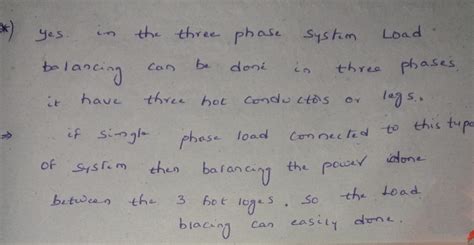 *) yes. in the three phase system Load
balancing can be doni in three phases
it have three hot conductors or legs.
⇒ if single phase load connected to this type
of system then balancing the power done
between the 3 hot loges. so the Load
blacing can easily done.